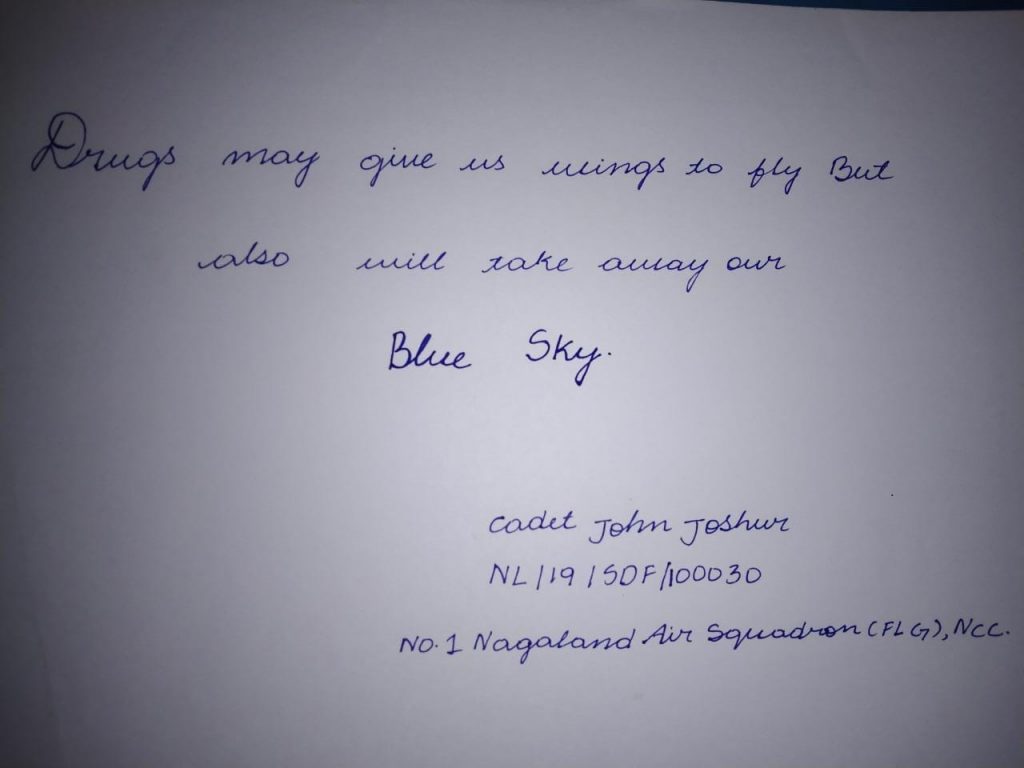 Drugs may give us wings to fly But
also will take away our
Blue Sky.
Cadet John Joshur
NL/19/SDF/100030
No.1 Nagaland Air Squadron (FLG), NCC.